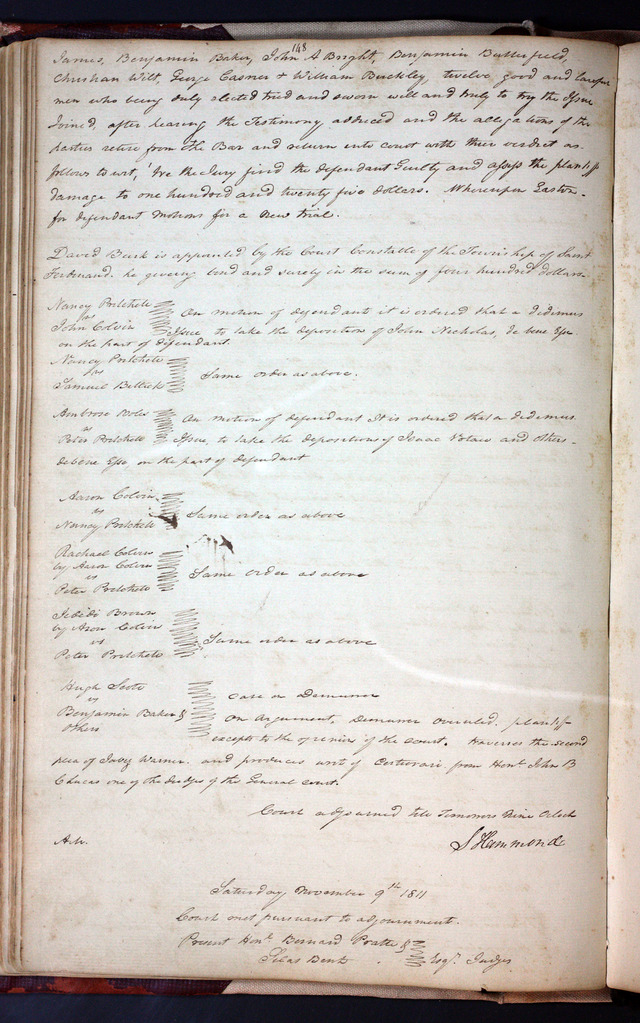 148
James, Benjamin Baker, John A Bright, Benjamin Butterfield,
Christian Wilt, George Casner & William Buckley, twelve good and lawful
men who being duly elected tried and sworn well and truly to try the Issue
Joined, after hearing the Testimony adduced and the allegations of the
parties retire from the Bar and return into court with their verdict as
follows to wit, 'We the Jury find the defendant Guilty and assess the plantiff
damage to one hundred and twenty five dollars. Whereupon Easton
for defendant motions for a new trial.
David Bush is appointed by the Court Constable of the Township of Saint
Ferdinand. he giveing bond and surety in the sum of four hundred dollars
Nancy Pritchete
vs
John Colvin
On motion of defendant it is ordered that a dedimus
Issue to take the deposition of John Nicholas, de bene Esse
on the part of defendant.
Nancy Pritchete
vs
Samuel
Same order as above.
Ambrose
vs
Peter Pritchete
On motion of defendant It is ordered that a dedimus
Issue, to take the depositions of Isaac Votaw and others
de bene Esse, on the part of defendant
Aaron Colvin
vs
Nancy Pritchete
Same order as above
Rachael Colvin
by Aaron Colvin
vs
Peter Pritchete
Same order as above
Brown
by Aron Colvin
vs
Peter Pritchete
Same order as above
Hugh Scott
vs
Benjamin Baker &
others
Case on Demurrer
On Argument, Demurrer overuled. plantiff
excepts to the opinion of the court. traverses the second
plea of Jabez Warner. and produces writ of Certiorari from Honl. John B
C Lucas one of the Judges of the General Court.
Court adjourned till tomorrow Nine OClock
S Hammond
Saturday November 9th 1811
Court met pursuant to adjournment.
Present Honl. Bernard Pratte &
Silas Bent
Esqr. Judges